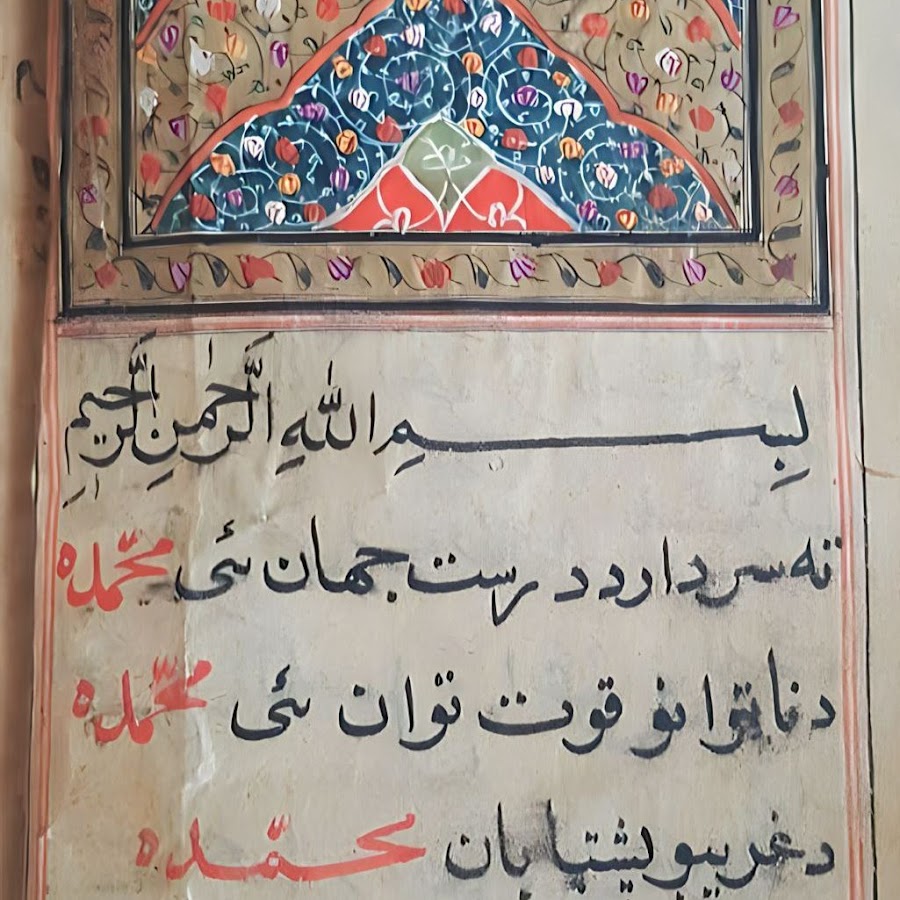 بِسْمِ اللهِ الرَّحْمٰنِ الرَّحِيمِ
ته سردار د درست جهان ئی محمّده
د ناتوانو قوت توان ئی محمّده
د غریبو پشتیبان محمّده